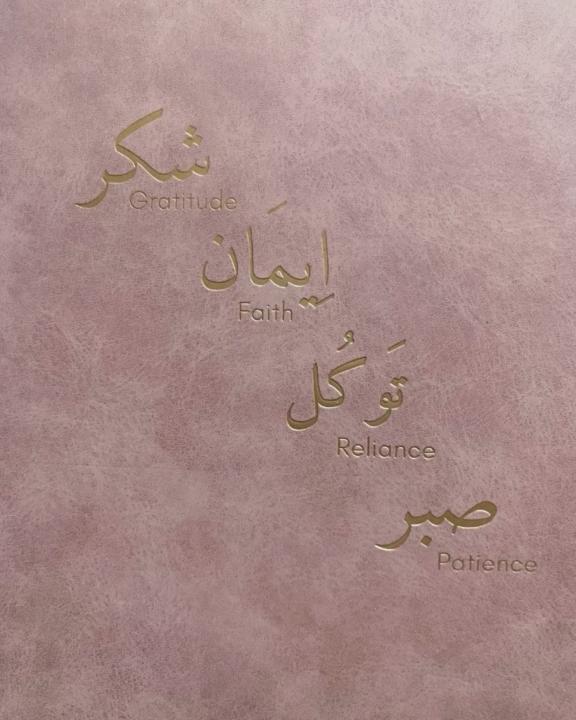 شكر
Gratitude
اِيمَان
Faith
تَوكُل
Reliance
صبر
Patience